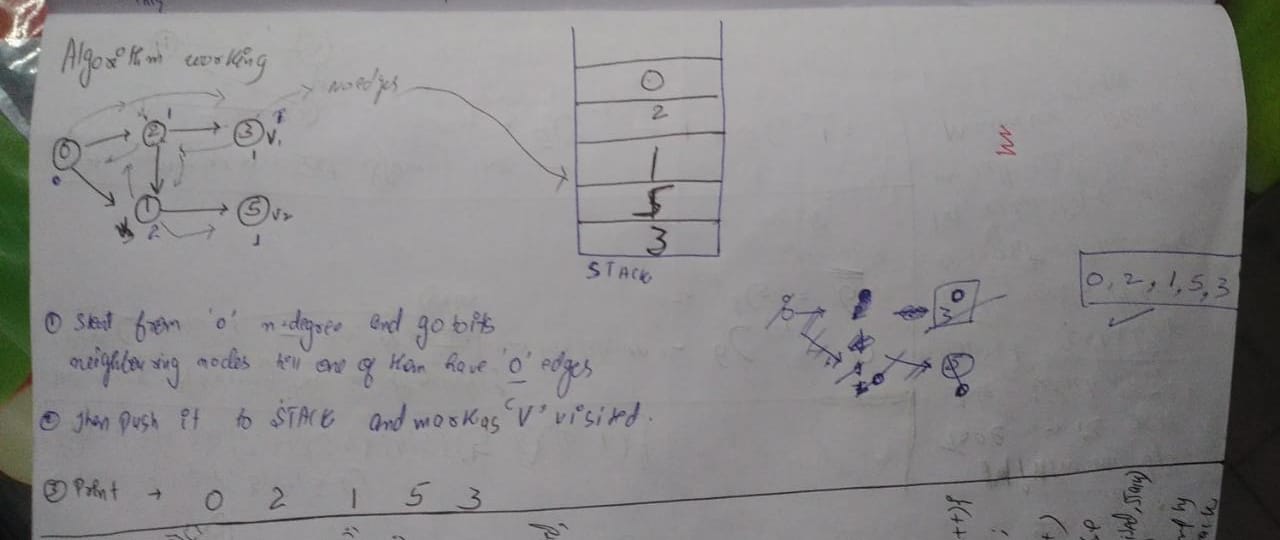 Algorithm working
no edges
0
2
3
V1
1
1
0
1
5
V2
2
1
0
2
1
5
3
STACK
0, 2, 1, 5, 3
① Start from 'o' n-degree and go to its
neighbouring nodes till one of them have 'o' edges
② Then push it to STACK and mark as 'V' visited.
③ Print → 0 2 1 5 3